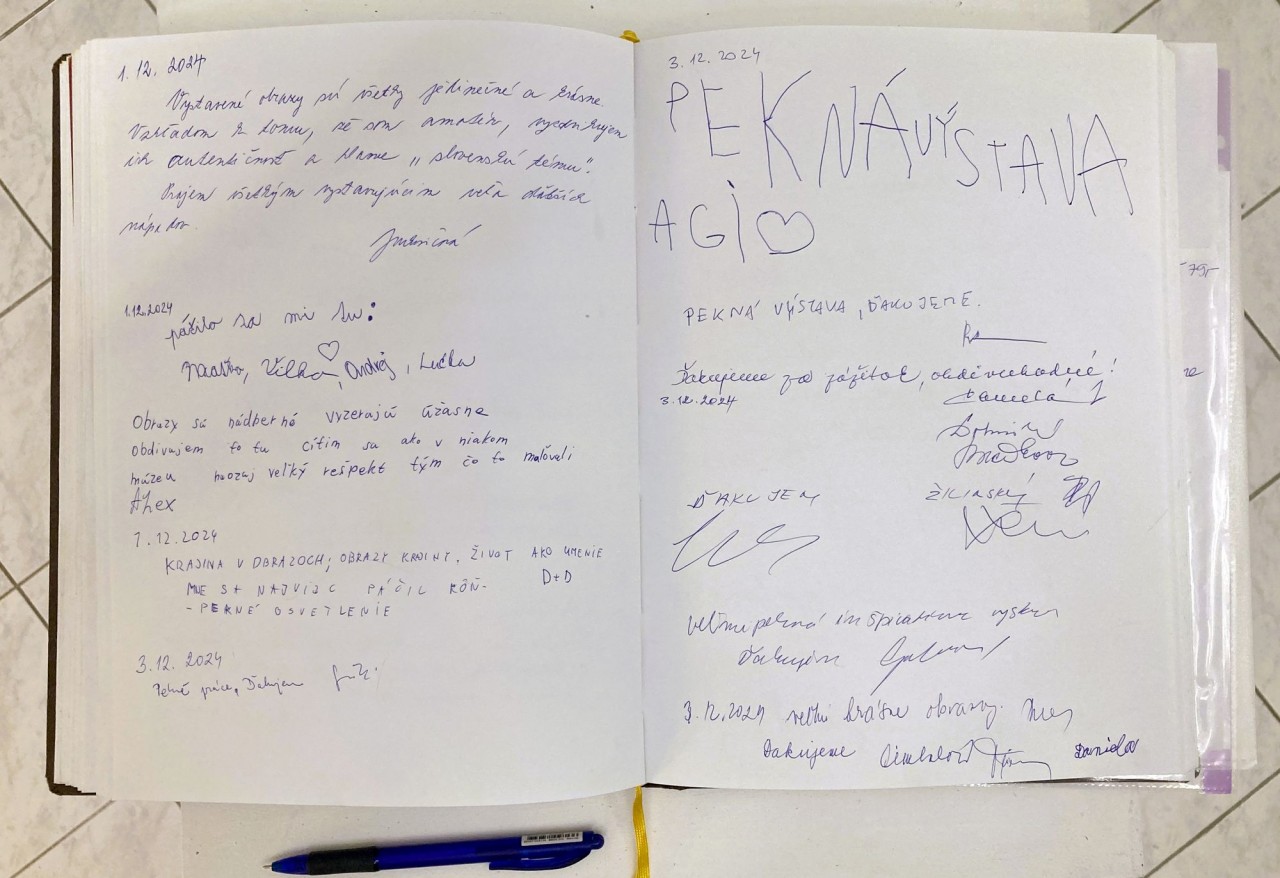 1. 12. 2024
Vystavené obrazy sú všetky jedinečné a krásne.
Vzhľadom k tomu, že som amatér, vyzdvihujem
ich autentičnosť a hlavne „slovenskú tému".
Prajem všetkým vystavujúcim veľa ďalších
nápadov.
1.12.2024
páčilo sa mi tu:
Vilka, Ondrej, Lucka
Obrazy sú nádherné vyzerajú úžasne
obdivujem to tu cítim sa ako v niakom
múzeu naozaj veľký rešpekt tým čo to maľovali
Alex
7.12.2024
KRAJINA V OBRAZOCH, OBRAZY KRAJINY. ŽIVOT AKO UMENIE
D+D
MNE SA NAJVIAC PÁČIL KÔŇ-
- PEKNÉ OSVETLENIE
3.12. 2024
Pekné práce, Ďakujem
3.12.2024
PEKNÁ VÝSTAVA
AGI ♡
PEKNÁ VÝSTAVA, ĎAKUJEME.
Ďakujeme za zážitok, obdivuhodné!
3.12.2024
ĎAKUJEM
ŽILINSKÝ
Veľmi pekná inšpiratívna výstava
Ďakujem
3.12.2024 veľmi krásne obrazy.
Ďakujeme
Daniela